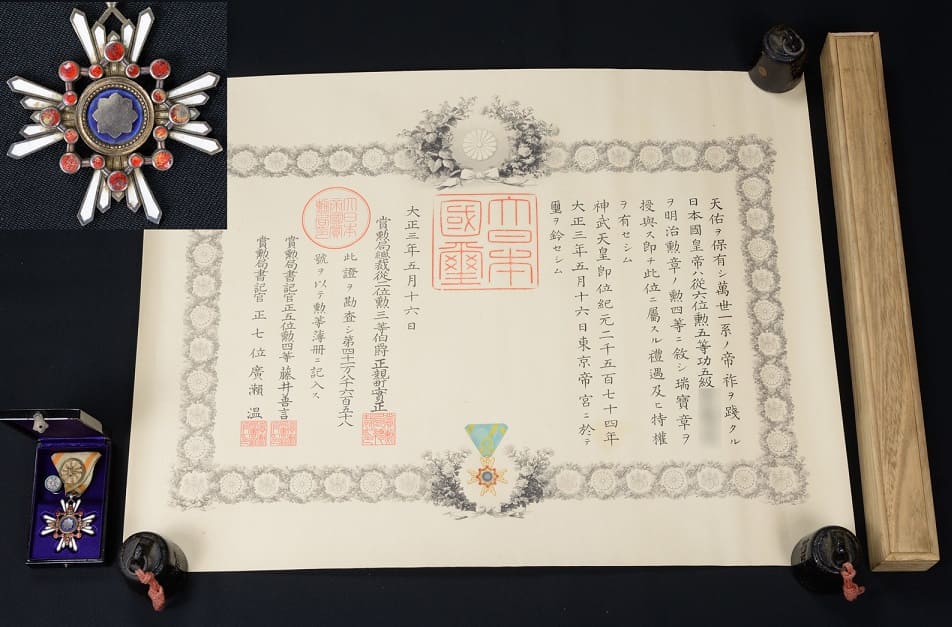 天佑ヲ保有シ萬世一系ノ帝祚ヲ踐タル
日本國皇帝ハ從六位勲五等功五級
ヲ明治勲章ノ勲四等ニ敘シ瑞寶章ヲ
授與ス即チ此位ニ屬スル禮遇及ヒ特權
ヲ有セシム
神武天皇即位紀元二千五百七十四年
大正三年五月十六日東京帝宮ニ於テ
璽ヲ鈐セシム
大日本
國璽
大正三年五月十六日
賞勲局總裁從二位勲三等伯爵正親町實正
此證ヲ勘査シ第四十一万八千六百五十八
號ヲ以テ勲等簿册ニ記入ス
賞勲局書記官正五位勲四等藤井善言
賞勲局書記官正七位廣瀬溫